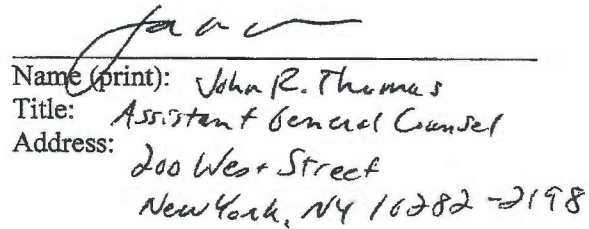 Name (print): John R. Thomas
Title: Assistant General Counsel
Address:
200 West Street
New York, NY 10282-2198